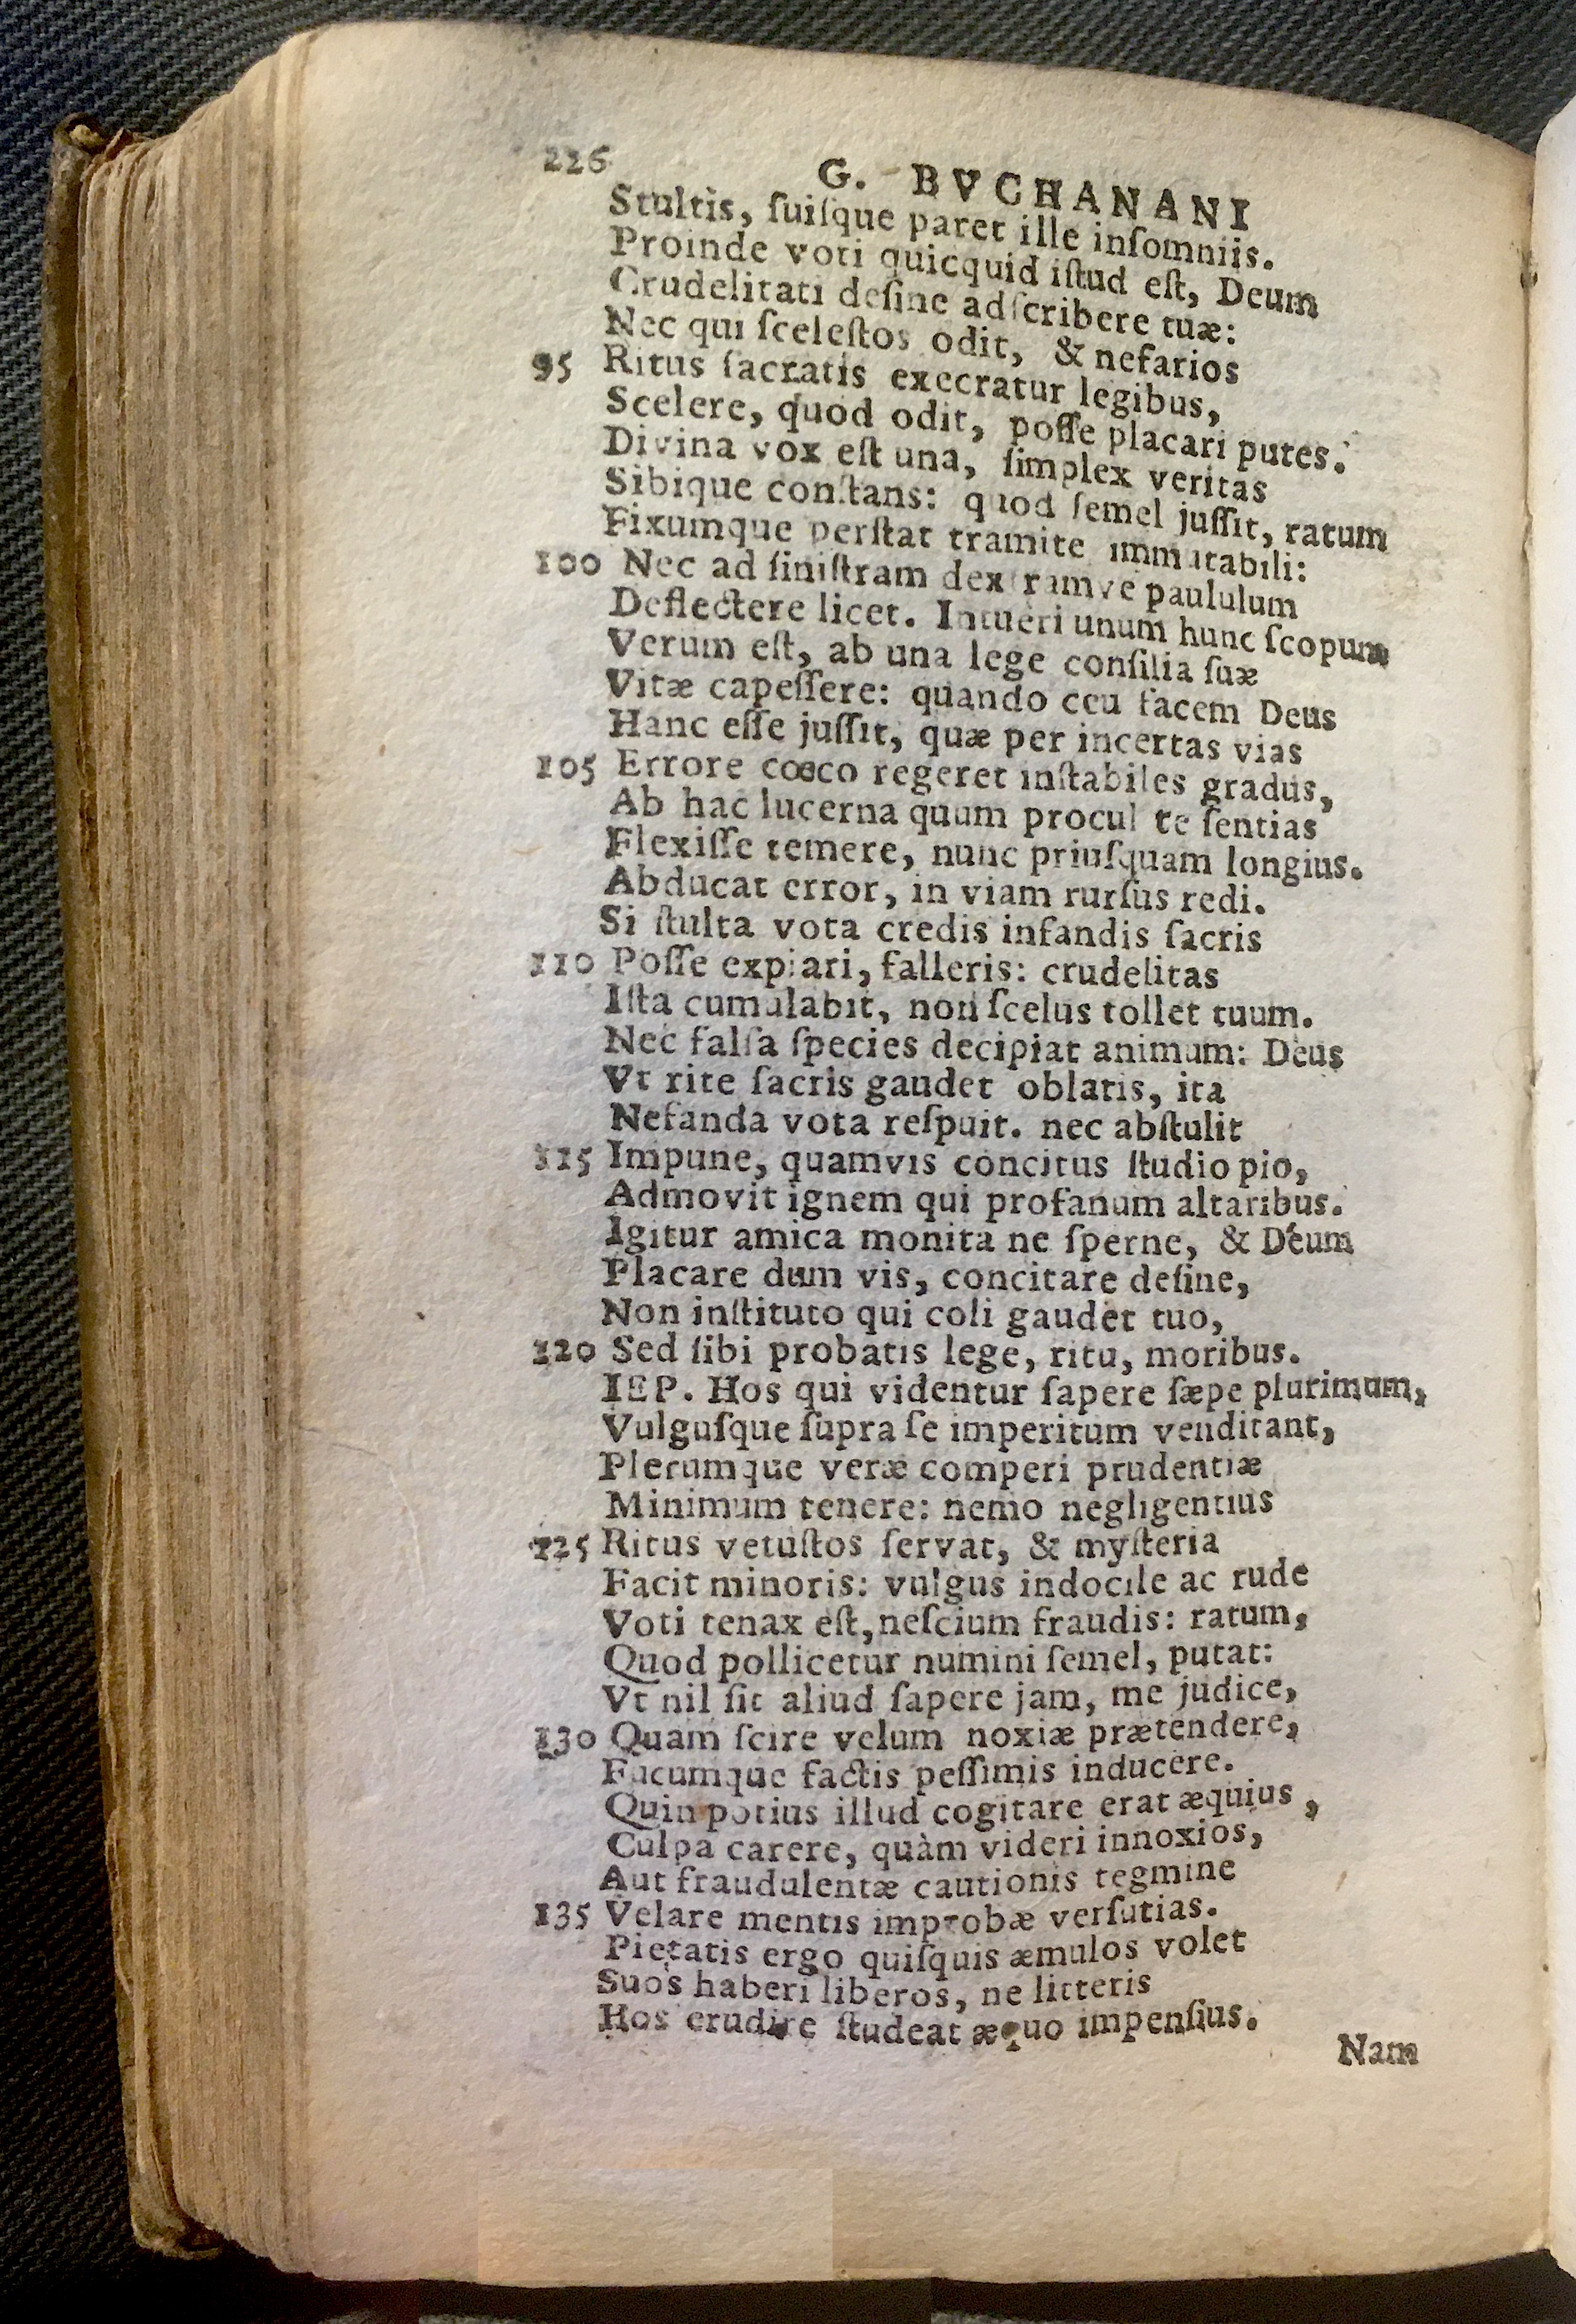 226
G. BVCHANANI
Stultis, ſuiſque paret ille inſomniis.
Proinde voti quicquid iſtud eſt, Deum
Crudelitati deſine adſcribere tuæ:
Nec qui ſceleſtos odit, & nefarios
95 Ritus ſacratis execratur legibus,
Scelere, quod odit, poſſe placari putes.
Divina vox eſt una, ſimplex veritas
Sibique conſtans: quod ſemel juſſit, ratum
Fixumque perſtat tramite immutabili:
100 Nec ad ſiniſtram dextramve paululum
Deflectere licet. Intueri unum hunc ſcopum
Verum eſt, ab una lege conſilia ſuæ
Vitæ capeſſere: quando ceu facem Deus
Hanc eſſe juſſit, quæ per incertas vias
105 Errore cœco regeret inſtabiles gradus,
Ab hac lucerna quum procul te ſentias
Flexiſſe temere, nunc priuſquam longius.
Abducat error, in viam rurſus redi.
Si ſtulta vota credis infandis ſacris
110 Poſſe expiari, falleris: crudelitas
Iſta cumulabit, non ſcelus tollet tuum.
Nec falſa ſpecies decipiat animum: Deus
Vt rite ſacris gaudet oblatis, ita
Nefanda vota reſpuit. nec abſtulit
115 Impune, quamvis concitus ſtudio pio,
Admovit ignem qui profanum altaribus.
Igitur amica monita ne ſperne, & Deum
Placare dum vis, concitare deſine,
Non inſtituto qui coli gaudet tuo,
120 Sed ſibi probatis lege, ritu, moribus.
IEP. Hos qui videntur ſapere ſæpe plurimum,
Vulguſque ſupra ſe imperitum venditant,
Plerumque veræ comperi prudentiæ
Minimum tenere: nemo negligentius
125 Ritus vetuſtos ſervat, & myſteria
Facit minoris: vulgus indocile ac rude
Voti tenax eſt, neſcium fraudis: ratum,
Quod pollicetur numini ſemel, putat:
Vt nil ſit aliud ſapere jam, me judice,
130 Quam ſcire velum noxiæ prætendere,
Fucumque factis peſſimis inducere.
Quin potius illud cogitare erat æquius,
Culpa carere, quàm videri innoxios,
Aut fraudulentæ cautionis tegmine
135 Velare mentis improbæ verſutias.
Pietatis ergo quiſquis æmulos volet
Suos haberi liberos, ne litteris
Hos erudire ſtudeat æquo impenſius.
Nam